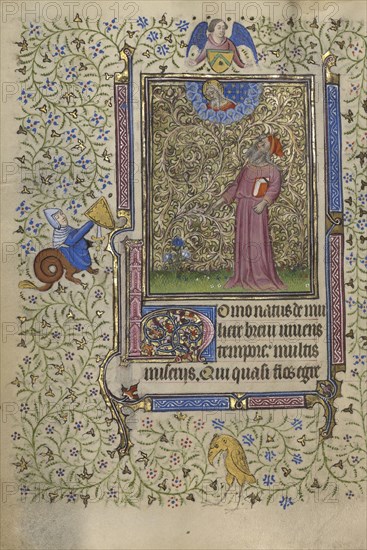 Homo natus de mu
liere brevi vivens
tempore. multis
miseriis, Qui quasi flos egre
PHOTO12